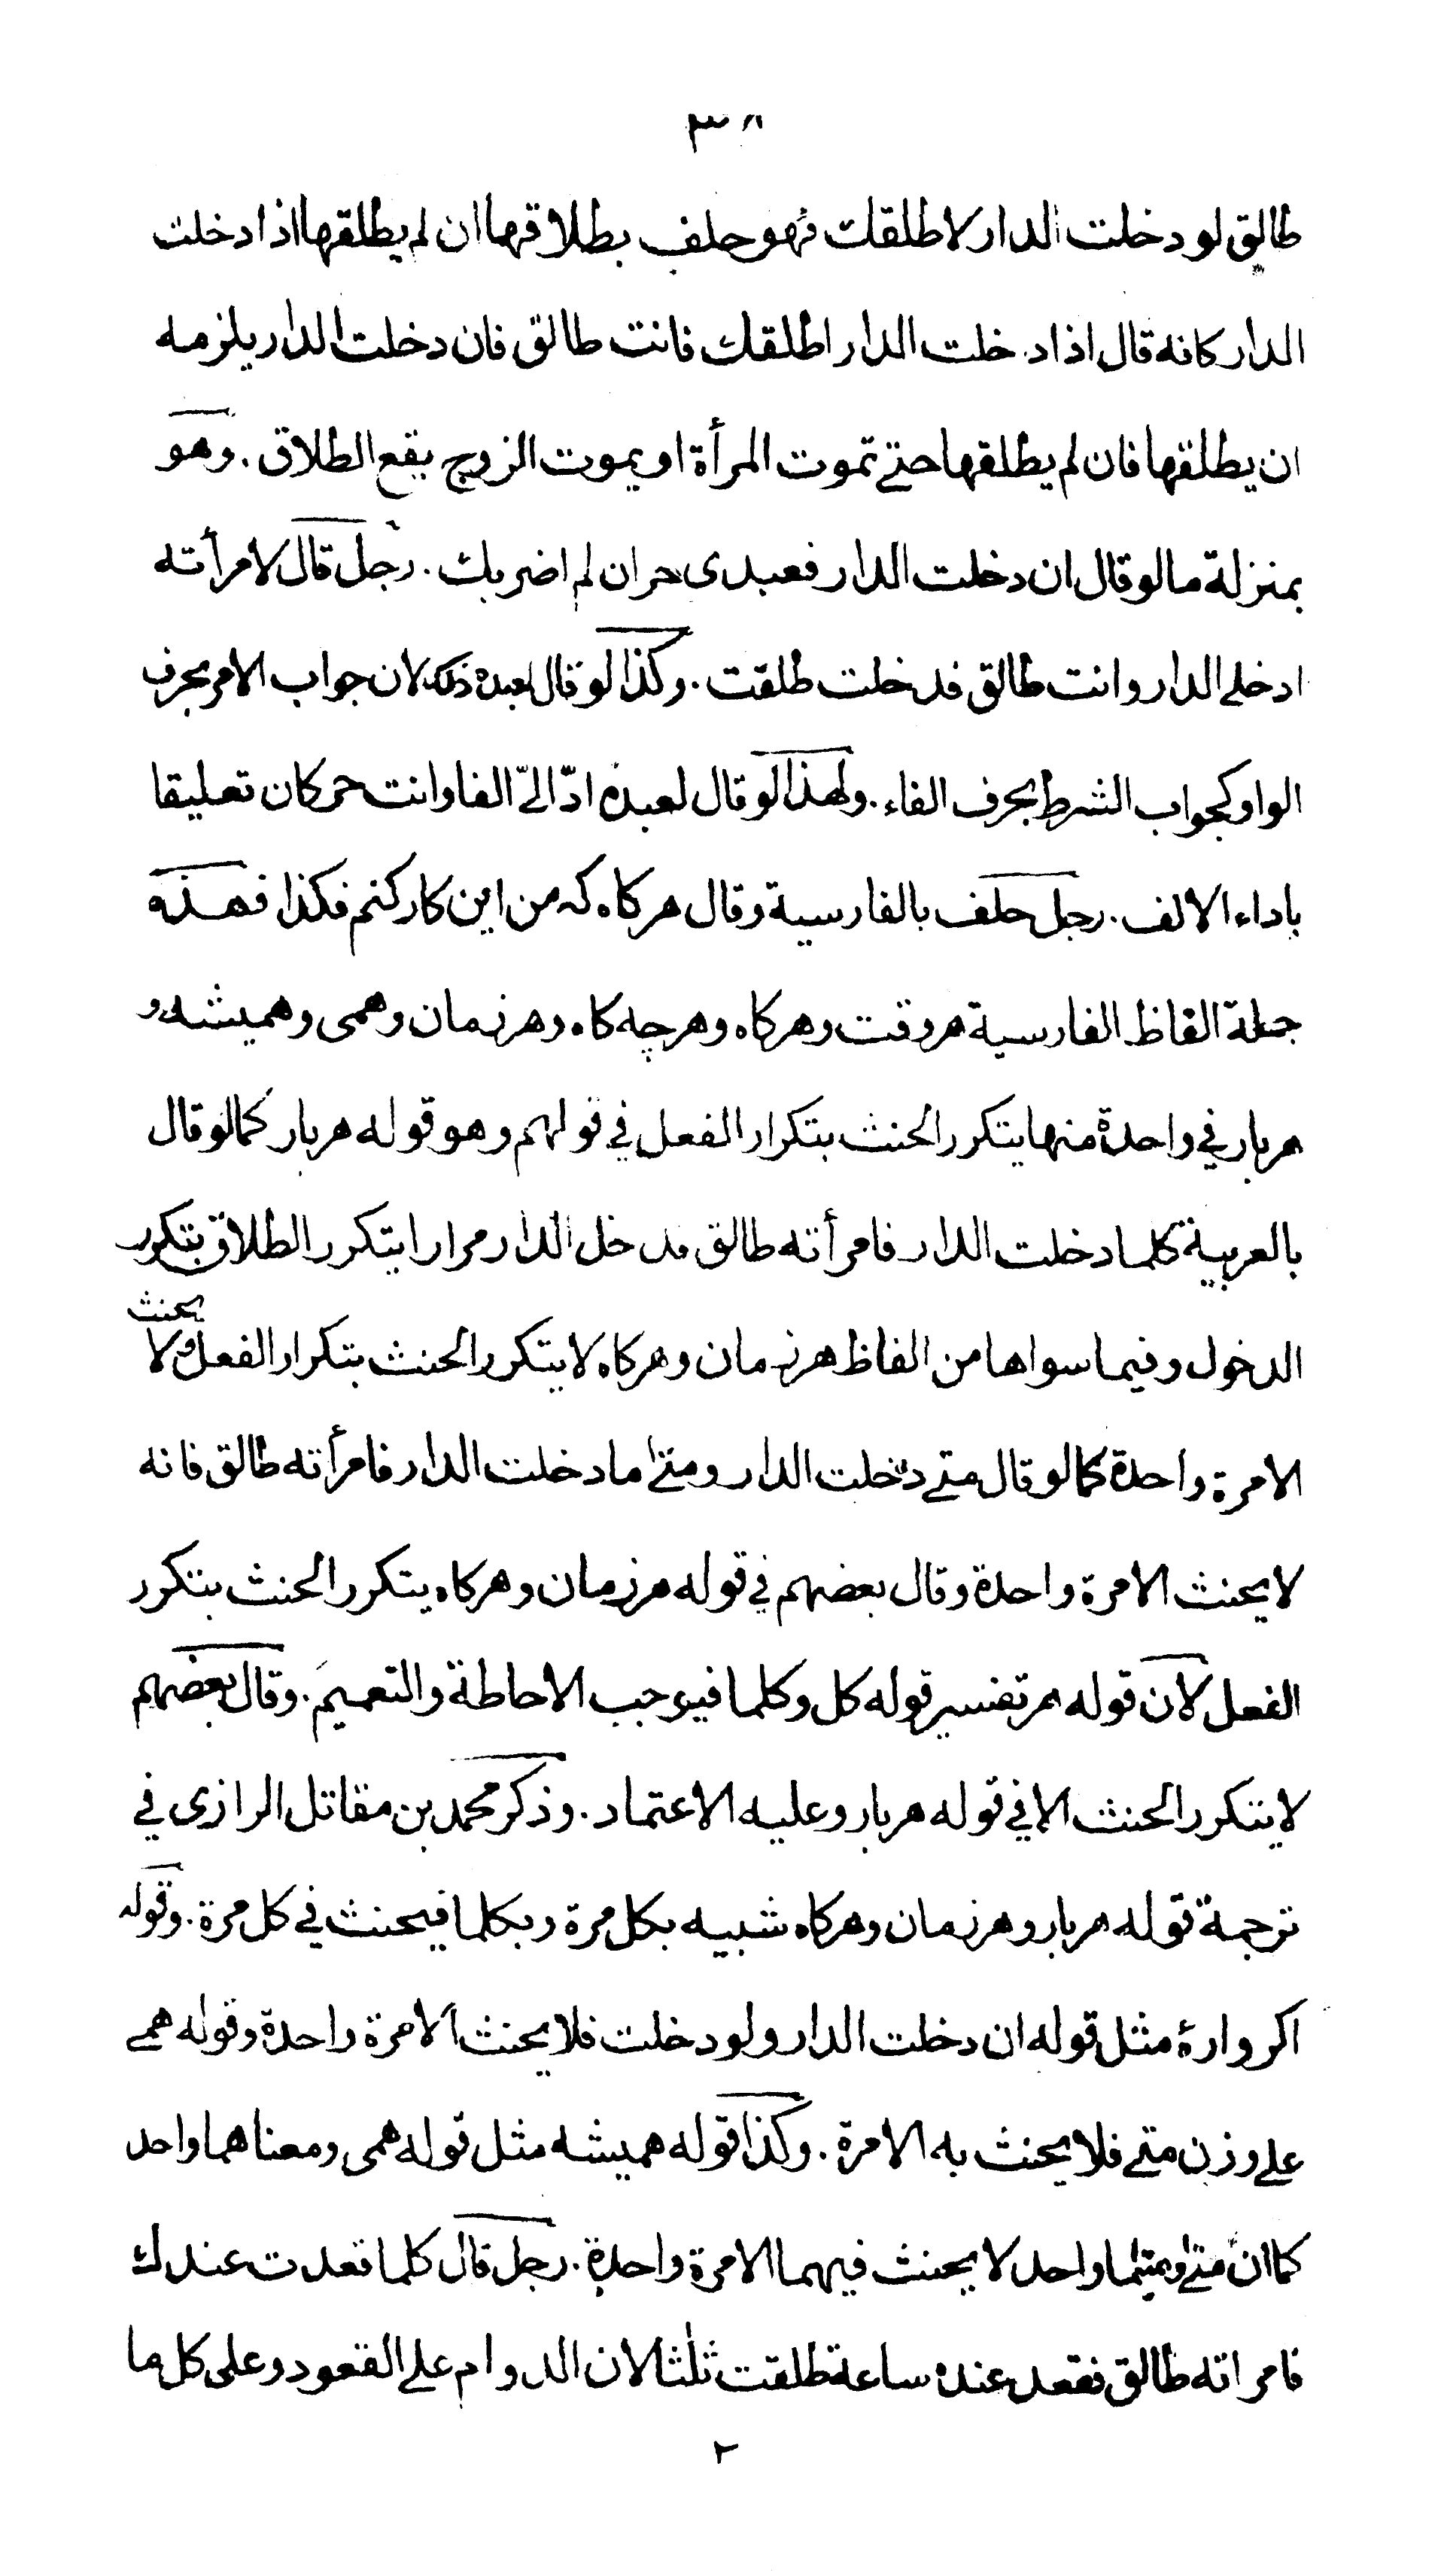 ٣٨
طالق لو دخلت الدار لاطلقك فهو حلف بطلاقها ان لم يطلقها اذا دخلت
الدار كانه قال اذا دخلت الدار اطلقك فانت طالق فان دخلت الدار يلزمه
ان يطلقها فان لم يطلقها حتى تموت المرأة او يموت الزوج يقع الطلاق . وهو
بمنزلة ما لو قال ان دخلت الدار فعبدى حر ان لم اضربك . رجل قال لامرأته
ادخلى الدار وانت طالق فدخلت طلقت . وكذا لو قال لعبده ذلك لان جواب الامر بحرف
الواو كجواب الشرط بحرف الفاء . ولهذا لو قال لعبده ادّ الىّ الفا وانت حر كان تعليقا
باداء الالف . رجل حلف بالفارسية وقال هر كاه كه من اين كار كنم فكذا فهذه
جملة الفاظ الفارسية هر وقت وهركاه وهرچه كاه وهر زمان وهمى وهميشه و
هر بار فى واحدة منها يتكرر الحنث بتكرار الفعل فى قولهم وهو قوله هربار كما لو قال
بالعربية كلما دخلت الدار فامرأته طالق فدخل الدار مرارا يتكرر الطلاق بتكرر
الدخول وفيما سواها من الفاظ هرزمان وهركاه لا يتكرر الحنث بتكرار الفعل ولا يحنث
الا مرة واحدة كما لو قال متى دخلت الدار ومتى ما دخلت الدار فامرأته طالق فانه
لا يحنث الا مرة واحدة وقال بعضهم فى قوله هرزمان وهركاه يتكرر الحنث بتكرر
الفعل لان قوله هر تفسير قوله كل وكلما فيوجب الاحاطة والتعميم . وقال بعضهم
لا يتكرر الحنث الا فى قوله هربار وعليه الاعتماد . وذكر محمد بن مقاتل الرازى فى
ترجمة قوله هربار وهرزمان وهركاه شبيه بكل مرة وبكلما فيحنث فى كل مرة . وقوله
اكر وارة مثل قوله ان دخلت الدار ولو دخلت فلا يحنث الا مرة واحدة وقوله همى
على وزن متى فلا يحنث به الا مرة . وكذا قوله هميشه مثل قوله همى ومعناهما واحد
كما ان متى ومتيما واحد لا يحنث فيهما الا مرة واحدة . رجل قال كلما قعدت عندك
فامراته طالق فقعد عنده ساعة طلقت ثلثا لان الدوام على القعود وعلى كل ما
٢